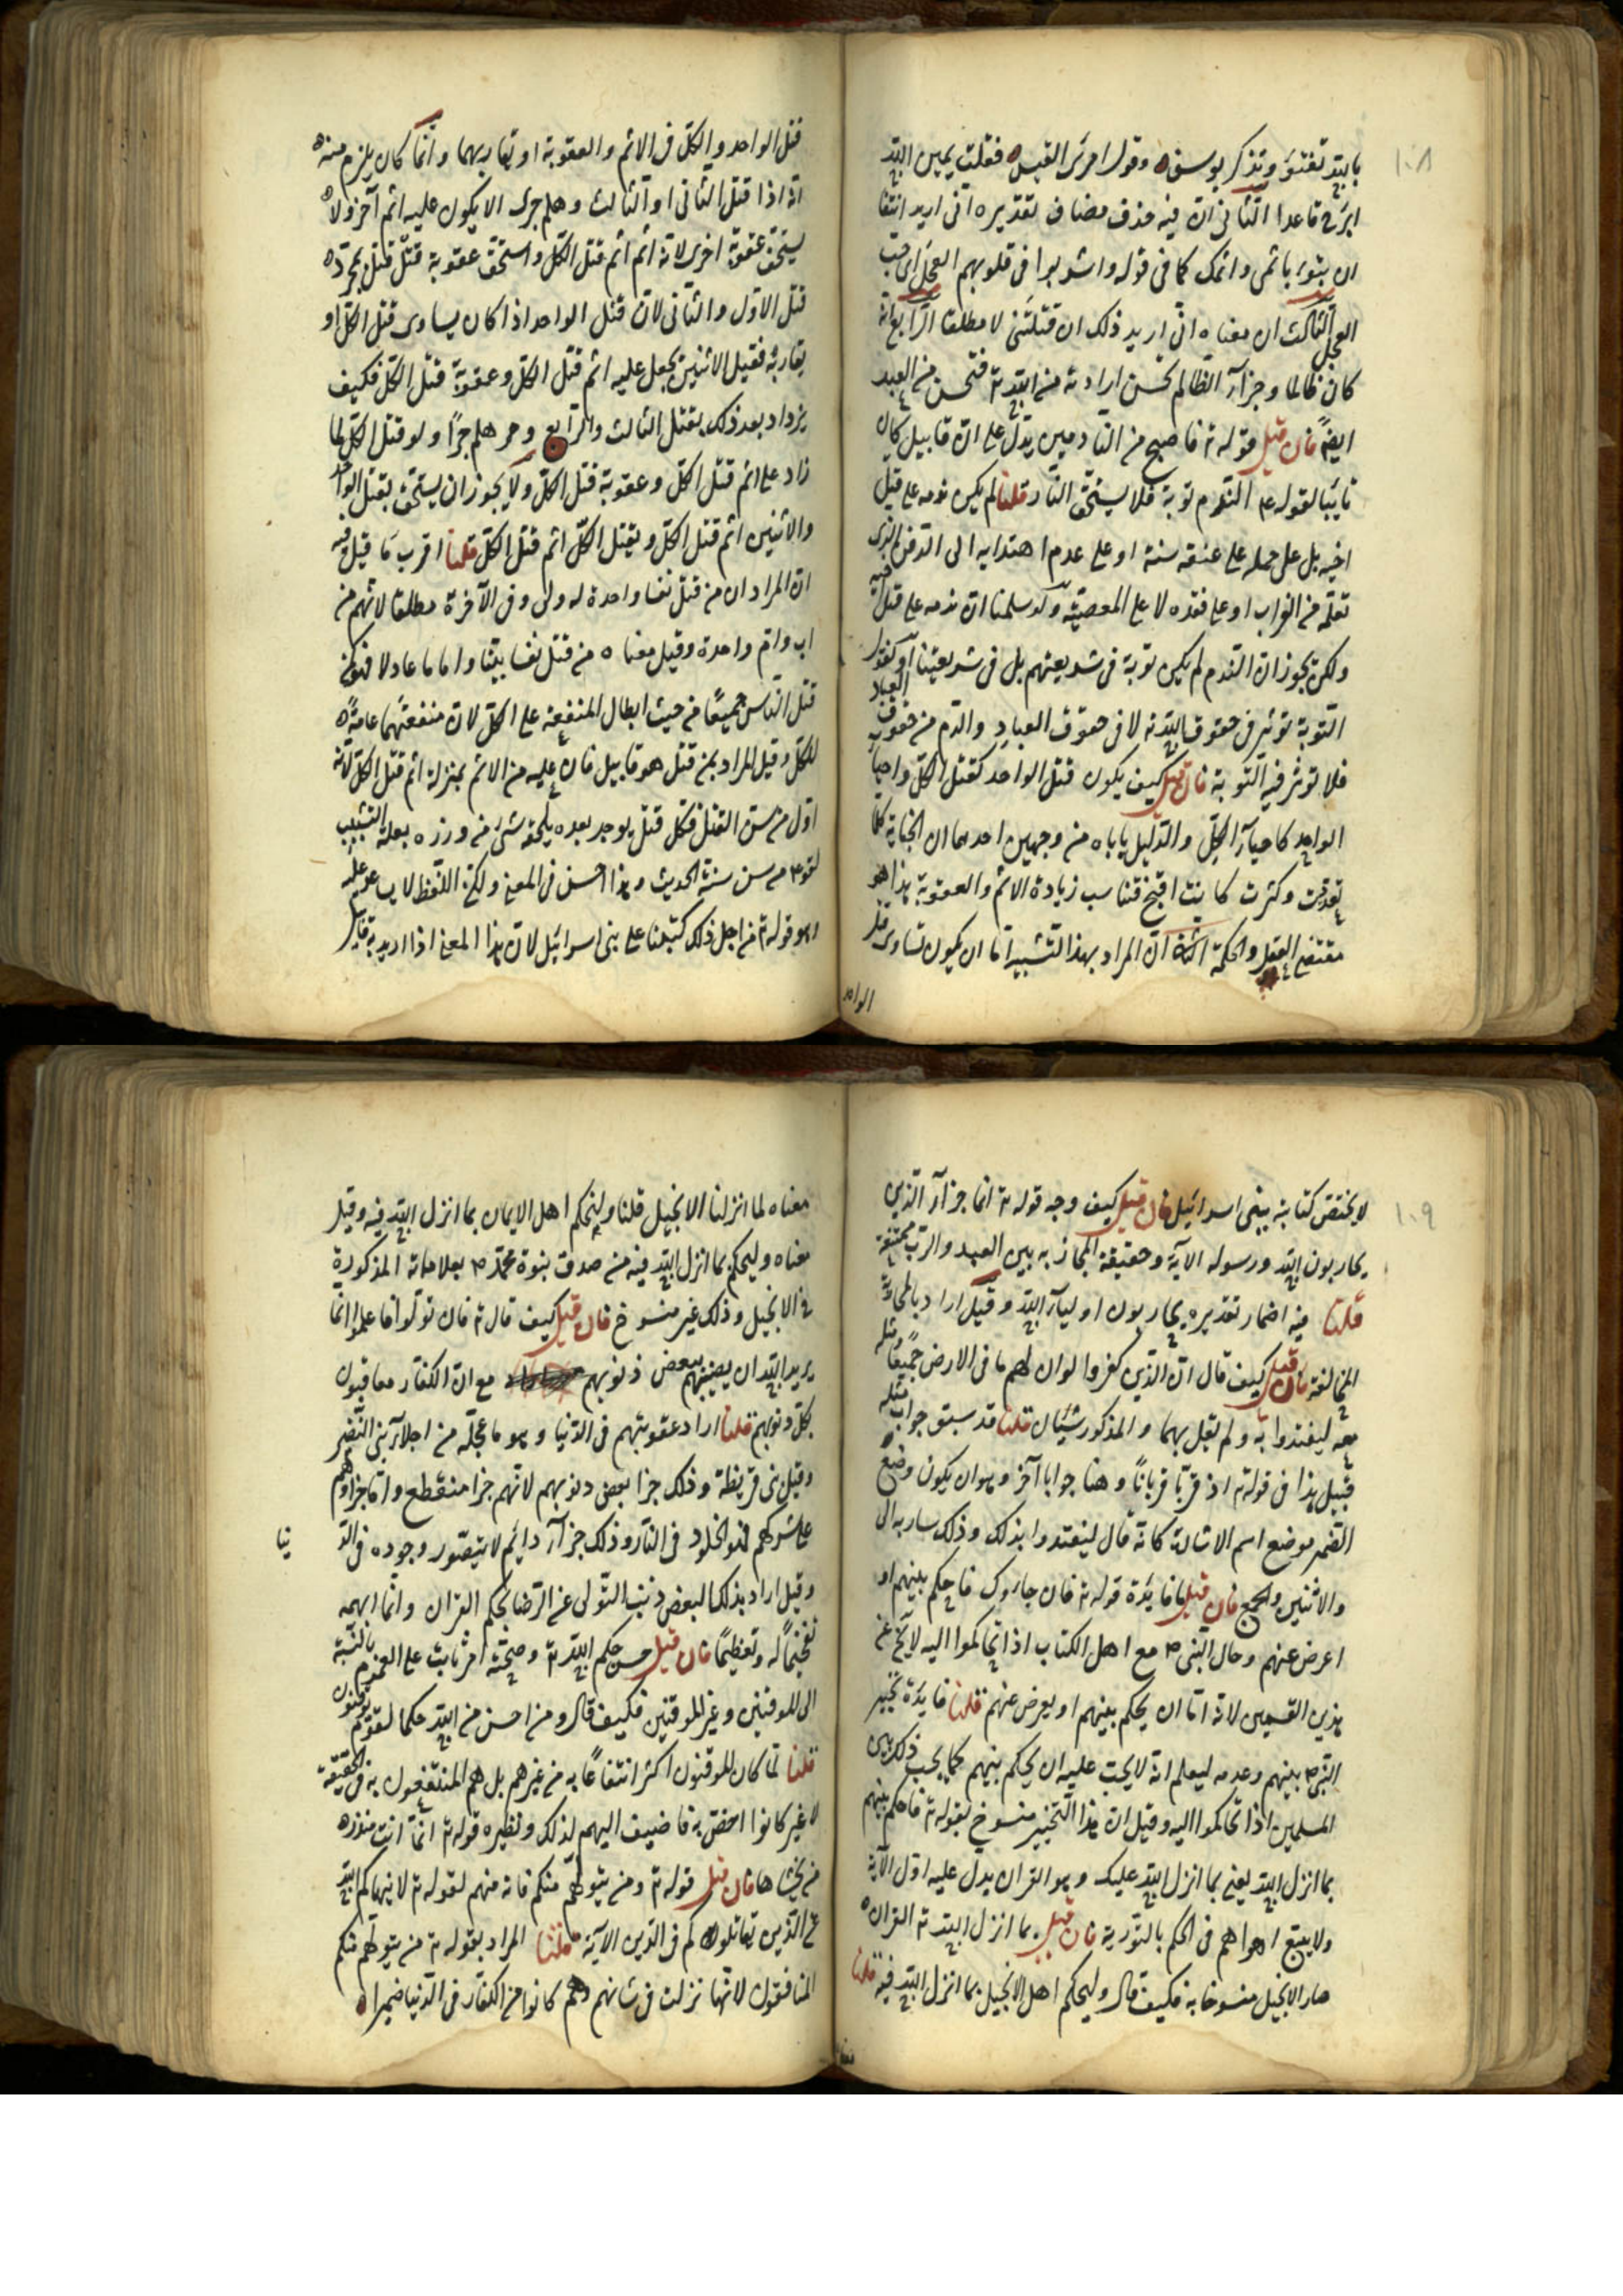 ١٠٨
بالله تفتؤ وتذكر يوسف وقول امرئ القيس فقلت يمين الله
ابرح قاعدا الثاني ان فيه حذف مضاف تقديره اني اريد انتفا
ان تبوء باثمي واثمك كما في قوله واشربوا في قلوبهم العجل اي حب
العجل الثالث ان معناه اني اريد ذلك ان قتلتني لا مطلقا الرابع انه
كان ظالما وجزآء الظالم تحسن ارادته من الله تع فتحسن من العبد
ايضا فان قيل قوله تع فاصبح من النادمين يدل على ان قابيل كان
تايبا لقوله عم الندم توبة فلا يستحق النار قلنا لم يكن ندمه على قتل
اخيه بل على حمله على عنقه سنة او على عدم اهتدايه الى الدفن الذي
تعلمه من الغراب او على فقده لا على المعصية ولو سلمنا ان ندمه على قتل اخيه
ولكن يجوز ان الندم لم يكن توبة في شريعتهم بل في شريعتنا او نقول
التوبة توثر في حقوق الله تع لا في حقوق العباد والدم من حقوق العباد
فلا توثر فيه التوبة فان قيل كيف يكون قتل الواحد كقتل الكل واحيآء
الواحد كاحيآء الكل والدليل ياباه من وجهين احدهما ان الجناية كلما
تعددت وكثرت كانت اقبح فتناسب زيادة الاثم والعقوبة هذا هو
مقتضى العقل والحكمة الثاني ان المراد بهذا التشبيه اما ان يكون تساوي قتل
الواحد
قتل الواحد والكل في الاثم والعقوبة او تقاربهما وانما كان يلزم منه
انه اذا قتل الثاني او الثالث وهلم جرى الا يكون عليه اثم آخر ولا
يستحق عقوبة اخرى لانه اثم اثم قتل الكل واستحق عقوبة قتل قتل بمجرد
قتل الاول والثاني لان قتل الواحد اذا كان يساوى قتل الكل او
يقاربه فقيل الاثنين يجعل عليه اثم قتل الكل وعقوبة قتل الكل فكيف
يزداد بعد ذلك بقتل الثالث والرابع وهلم جرا ولو قتل الكل لما
زاد على اثم قتل الكل وعقوبة قتل الكل ولا يجوز ان يستحق بقتل الواحد
والاثنين اثم قتل الكل وبقتل الكل اثم قتل الكل قلنا اقرب ما قيل فيه
ان المراد ان من قتل نفسا واحدة له ولي وفي الآخرة مطلقا لانهم من
اب وام واحدة وقيل معناه من قتل نفسا نبيا او اماما عادلا فهو كمن
قتل الناس جميعا من حيث ابطال المنفعة على الكل لان منفعتهما عامة
للكل وقيل المراد بمن قتل هو قابيل فان عليه من الاثم بمنزلة اثم قتل الكل لانه
اول من سن القتل فكل قتل يوجد بعده يلحقه شئ من وزره بعلة التسبب
لقوله عم من سن سنة الحديث وهذا احسن في المعنى ولكن اللفظ لا يساعد عليه
وهو قوله تع من اجل ذلك كتبنا على بني اسرائيل لان هذا المعنى اذا اريد به قابيل
١٠٩
لا يختص كتابته ببنى اسرائيل فان قيل كيف وجه قوله تع انما جزآء الذين
يحاربون الله ورسوله الآية وحقيقة المحاربة بين العبد والرب ممتنعة
قلنا فيه اضمار تقديره يحاربون اولياء الله وقيل اراد بالمحاربة
المخالفة فان قيل كيف قال ان الذين كفروا لو ان لهم ما في الارض جميعا ومثله
معه ليفتدوا به ولم يقل بهما والمذكور شيئان قلنا قد سبق جواب مثله
قبيل هذا في قوله تع اذ قربا قربانا وهنا جوابا آخر وهو ان يكون وضع
الضمير موضع اسم الاشارة كانه قال ليفتدوا بذلك وذلك يشار به الى
والاثنين والجمع فان قيل ما فايدة قوله تع فان جاؤك فاحكم بينهم او
اعرض عنهم وحال النبي ص مع اهل الكتاب اذا تحاكموا اليه لا يخ عن
هذين القسمين لانه اما ان يحكم بينهم او يعرض عنهم قلنا فايدة تخيير
النبي ص بينهم وعدمه ليعلم انه لا يجب عليه ان يحكم بينهم كما يجب ذلك بين
المسلمين اذا تحاكموا اليه وقيل ان هذا التخيير منسوخ بقوله تع فاحكم بينهم
بما انزل الله يعنى بما انزل الله عليك وهو القران يدل عليه اول الآية
ولا يتبع اهواهم في الحكم بالتورية فان قيل بما انزل الله تع القران
صار الانجيل منسوخا به فكيف قال وليحكم اهل الانجيل بما انزل الله فيه قلنا
معناه
معناه لما انزلنا الانجيل قلنا وليحكم اهل الايمان بما انزل الله فيه وقيل
معناه وليحكم بما انزل الله فيه من صدق بنوة محمد ص بعلاماته المذكورة
في الانجيل وذلك غير منسوخ فان قيل كيف قال تع فان تولوا فاعلموا انما
يريد الله ان يصيبهم ببعض ذنوبهم مع ان الكفار معاقبون
بكل ذنوبهم قلنا اراد عقوبتهم في الدنيا وهو ما عجله من اجلآء بني النضير
وقيل بني قريظة وذلك جزا بعض ذنوبهم لانهم جزا منقطع واما جزاؤهم
على شركهم فهو الخلود في النار وذلك جزآء دايم لا يتصور وجوده في الد
نيا
وقيل اراد بذلك البعض ذنب التولى عن الرضا بحكم القران وانما ابهمه
تفخيما له وتعظيما فان قيل حسن حكم الله تع وصحته امر ثابت على العموم بالنسبة
الى الموقنين وغير الموقنين فكيف قال ومن احسن من الله حكما لقوم يوقنون
قلنا لما كان الموقنون اكثر انتفاعا به من غيرهم بل هم المنتفعون به في الحقيقة
لا غير كانوا اخص به فاضيف اليهم لذلك ونظيره قوله تع انما انت منذر
من يخشاها فان قيل قوله تع ومن يتولهم منكم فانه منهم لقوله تع لا ينهاكم الله
عن الذين يقاتلوكم في الدين الآية قلنا المراد بقوله تع من يتولهم منكم
المنافقون لانها نزلت في شانهم وهم كانوا من الكفار في الدنيا ضميرا